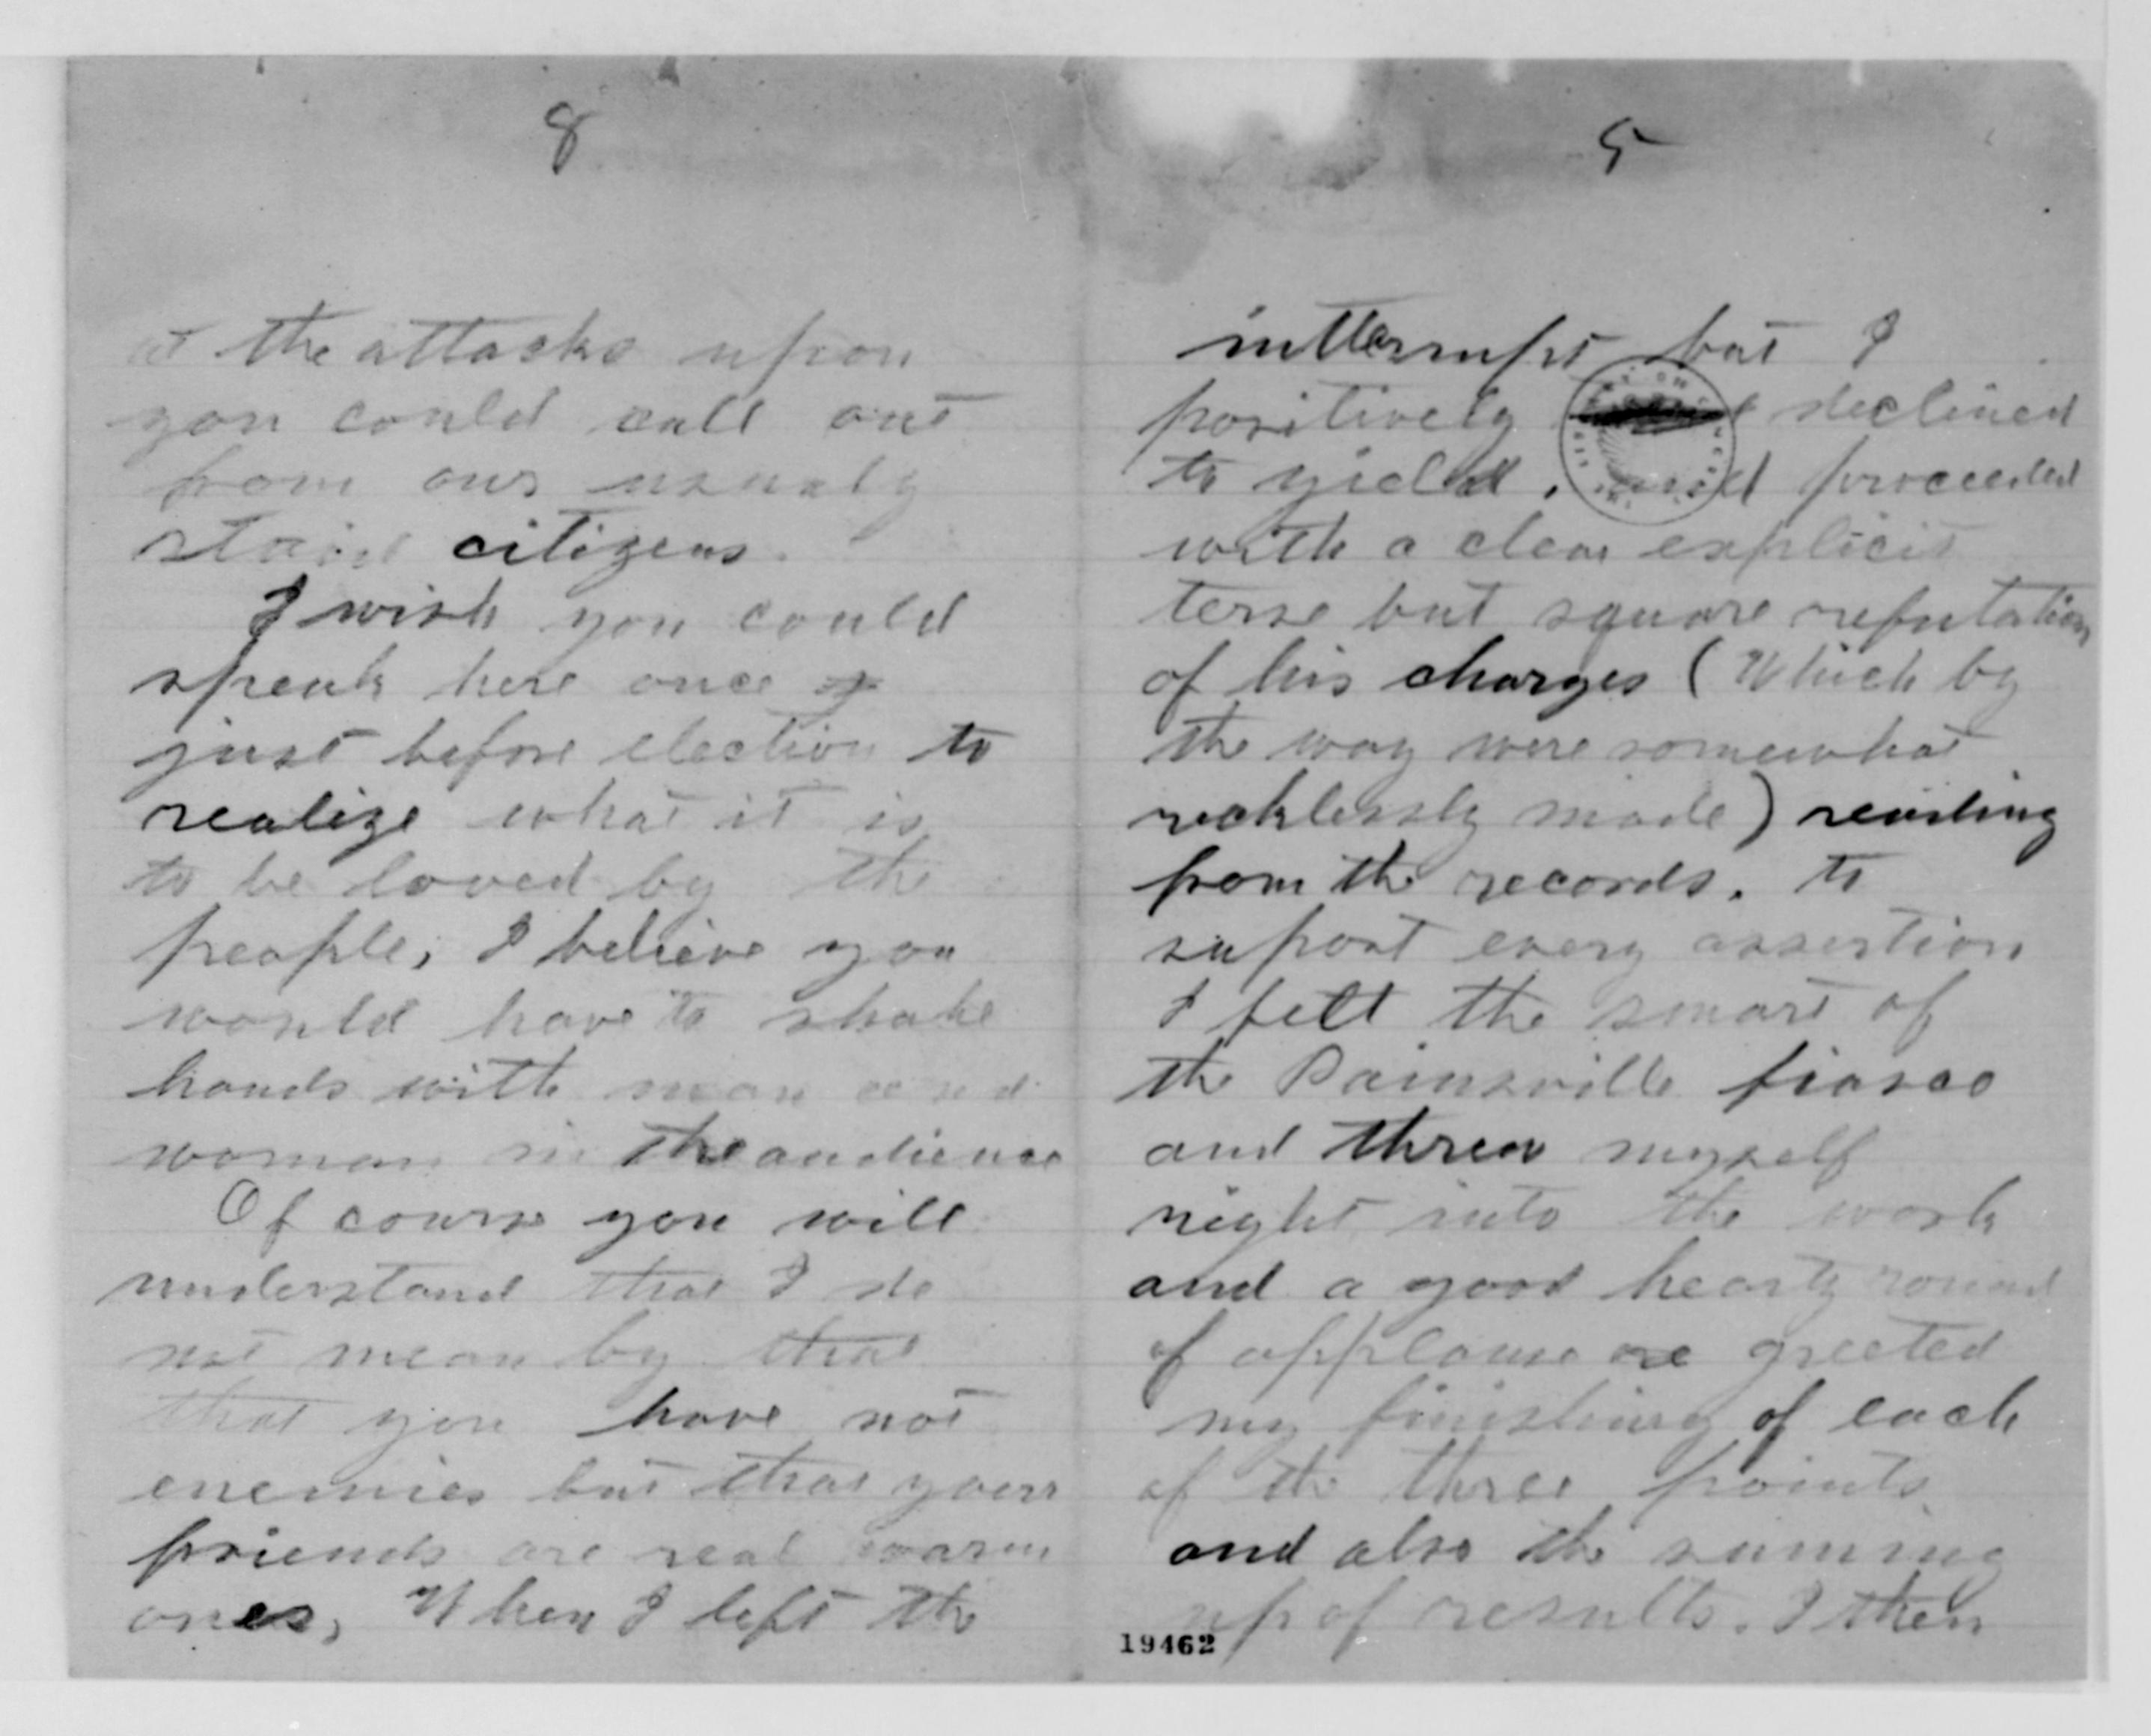 8
at the attacks upon
you could call out
from our usualy
staid citizens.
I wish you could
speak here once
just before election to
realize what it is
to be loved by the
people, I believe you
would have to shake
hands with man and
woman in the audience
Of course you will
understand that I do
not mean by that
that you have not
enemies but that your
friends are real warm
ones, When I left the
5
interrupt but I
positively declined
to yield, and proceeded
with a clear explicit
terse but square refutation
of his charges (Which by
the way were somewhat
recklessly made) reading
from the records. to
suport every assertion
I felt the smart of
the Painsville fiasco
and threw myself
right into the work
and a good hearty round
of applause greeted
my finishing of each
of the three points
and also the suming
up of results. I then
19462